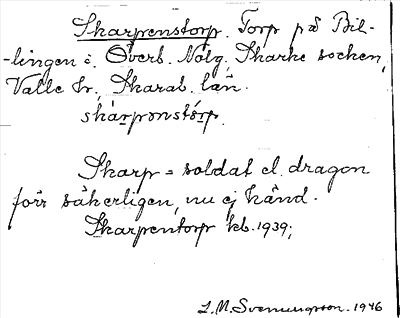 Skarpenstorp. Torp på Bil-
-lingen i. Överb. Nolg. Skarke socken,
Valle hr, Skarab. län.
skàrpənstórp.
Skarp = soldat el. dragon
förr säkerligen, nu ej känd.
Skarpentorp kb. 1939;
L. M. Svenungsson. 1946